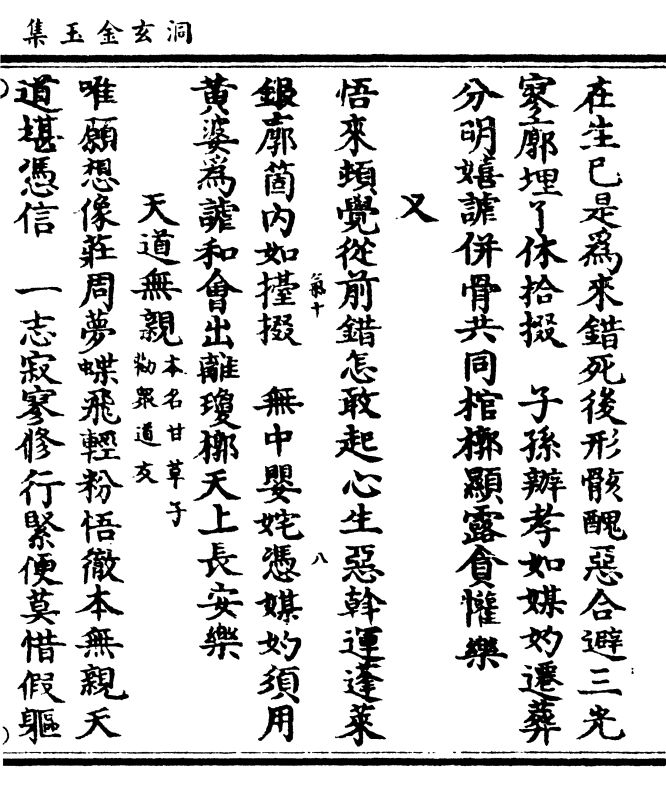 洞玄金玉集
在生已是爲來錯死後形骸醜惡合避三光
寥廓埋了休拾掇　子孫辦孝如媒妁遷葬
分明嬉謔併骨共同棺槨顯露貪懽樂
又
悟來頓覺從前錯怎敢起心生惡斡運蓬萊
氣十　八
銀廓箇內如擡掇　無中嬰姹憑媒妁須用
黃婆爲謔和會出離瓊槨天上長安樂
天道無親
本名甘草子
勸衆道友
唯願想像莊周夢蝶飛輕粉悟徹本無親天
道堪憑信　一志寂寥修行緊便莫惜假軀